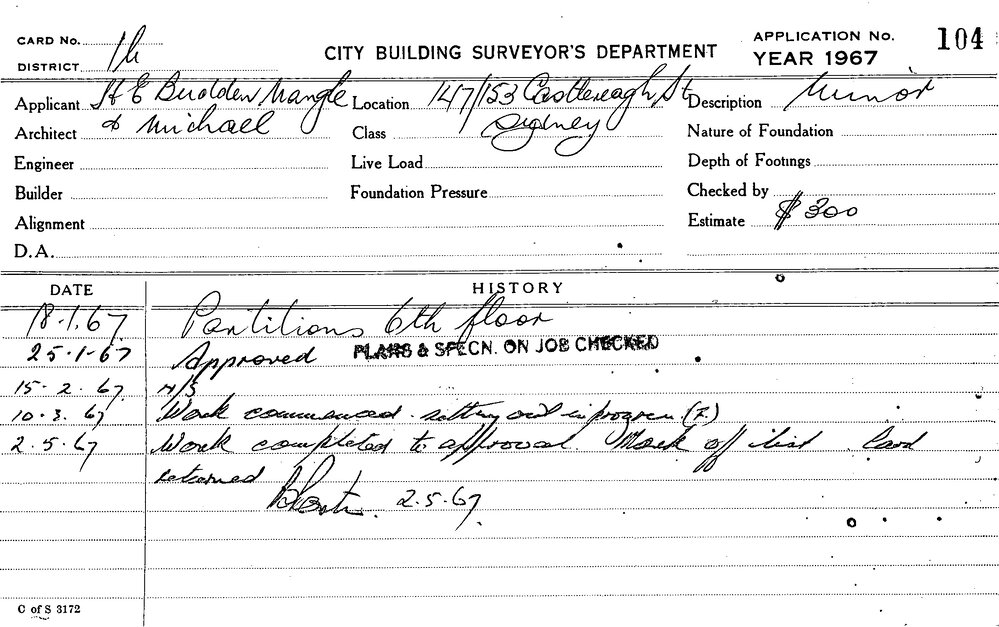 CARD No.
CITY BUILDING SURVEYOR'S DEPARTMENT
APPLICATION No. 104
DISTRICT
YEAR 1967
Applicant H E Budden Nangle Location 147/153 Castlereagh St Description Minor
Architect & Michael Class Sydney Nature of Foundation
Engineer Live Load Depth of Footings
Builder Foundation Pressure Checked by
Alignment Estimate $300
D.A.
DATE HISTORY
18.1.67 Partitions 6th floor
25.1.67 Approved PLANS & SPECN. ON JOB CHECKED
15.2.67 N/S
10.3.67 Work commenced. setting out in progress (7.)
2.5.67 Work completed to approval. Mark off list card
returned 2.5.67.
C of S 3172